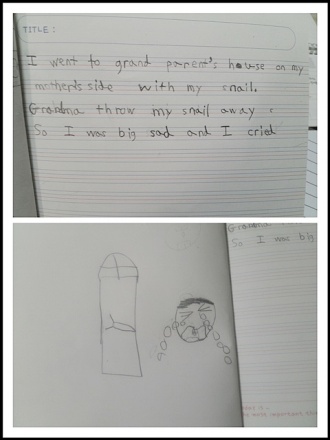 TITLE:
I went to grand parent's house on my
mother's side with my snail.
Grandma throw my snail away.
So I was big sad and I cried
Grandma
So I was big